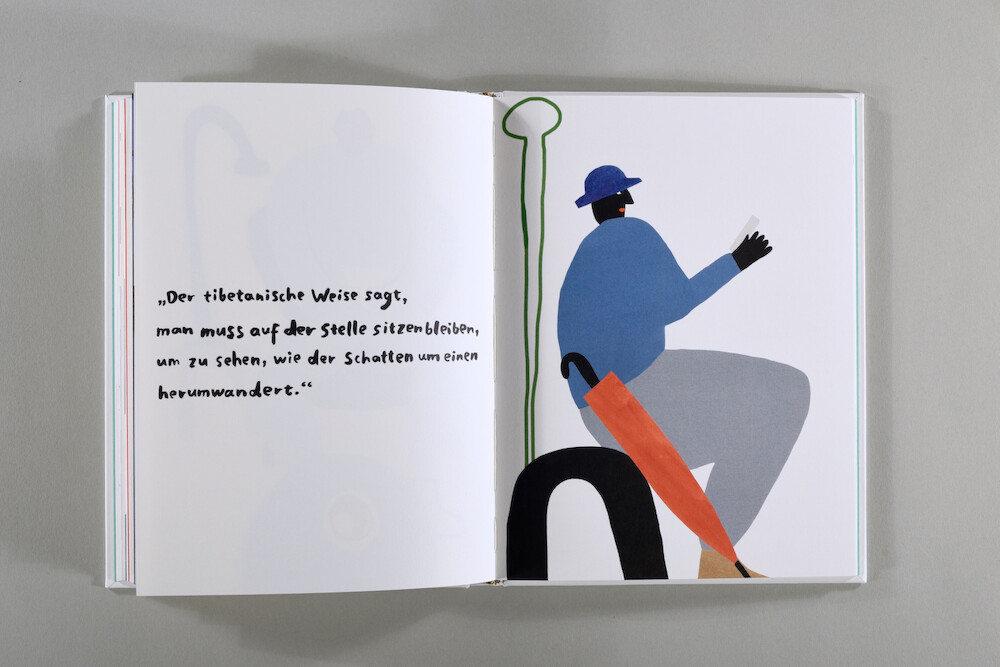 „Der tibetanische Weise sagt,
man muss auf der Stelle sitzenbleiben,
um zu sehen, wie der Schatten um einen
herumwandert.“